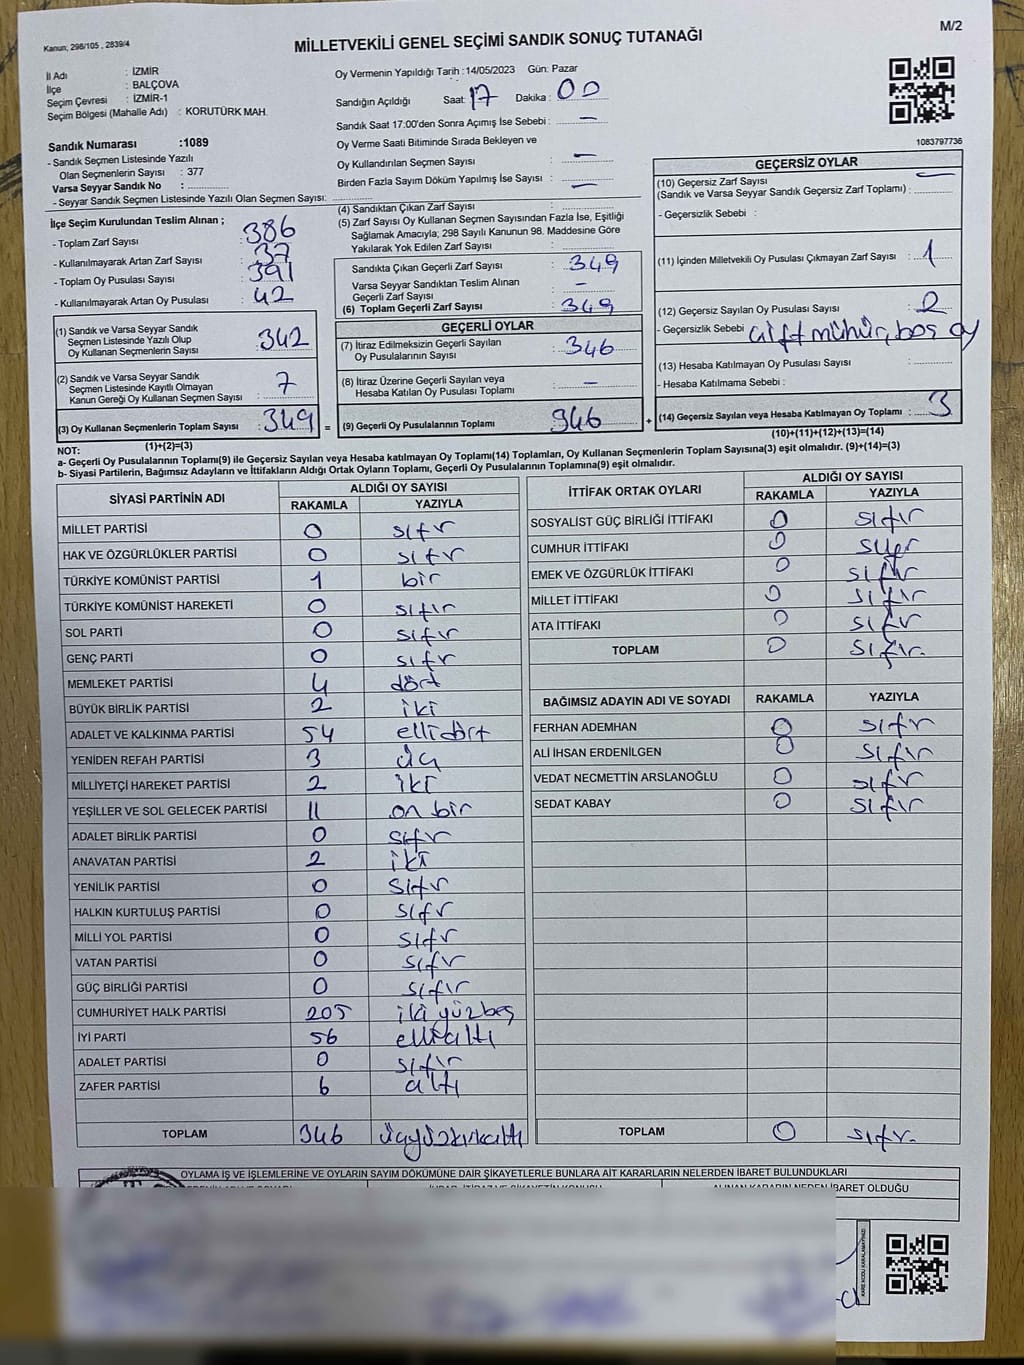 M/2
Kanun; 298/105 , 2839/4
MİLLETVEKİLİ GENEL SEÇİMİ SANDIK SONUÇ TUTANAĞI
İl Adı : İZMİR
İlçe : BALÇOVA
Seçim Çevresi : İZMİR-1
Seçim Bölgesi (Mahalle Adı) : KORUTÜRK MAH.
Sandık Numarası :1089
- Sandık Seçmen Listesinde Yazılı
Olan Seçmenlerin Sayısı : 377
Varsa Seyyar Sandık No :
- Seyyar Sandık Seçmen Listesinde Yazılı Olan Seçmen Sayısı:
Oy Vermenin Yapıldığı Tarih :14/05/2023 Gün: Pazar
Sandığın Açıldığı Saat: 17 Dakika : 00
Sandık Saat 17:00'den Sonra Açımış İse Sebebi : —
Oy Verme Saati Bitiminde Sırada Bekleyen ve
Oy Kullandırılan Seçmen Sayısı : —
Birden Fazla Sayım Döküm Yapılmış İse Sayısı : —
1083797736
İlçe Seçim Kurulundan Teslim Alınan ;
- Toplam Zarf Sayısı : 386
- Kullanılmayarak Artan Zarf Sayısı : 37
- Toplam Oy Pusulası Sayısı : 391
- Kullanılmayarak Artan Oy Pusulası : 42
(1) Sandık ve Varsa Seyyar Sandık
Seçmen Listesinde Yazılı Olup
Oy Kullanan Seçmenlerin Sayısı : 342
(2) Sandık ve Varsa Seyyar Sandık
Seçmen Listesinde Kayıtlı Olmayan
Kanun Gereği Oy Kullanan Seçmen Sayısı : 7
(3) Oy Kullanan Seçmenlerin Toplam Sayısı : 349 =
(1)+(2)=(3)
(4) Sandıktan Çıkan Zarf Sayısı :
(5) Zarf Sayısı Oy Kullanan Seçmen Sayısından Fazla İse, Eşitliği
Sağlamak Amacıyla; 298 Sayılı Kanunun 98. Maddesine Göre
Yakılarak Yok Edilen Zarf Sayısı :
Sandıkta Çıkan Geçerli Zarf Sayısı : 349
Varsa Seyyar Sandıktan Teslim Alınan
Geçerli Zarf Sayısı : —
(6) Toplam Geçerli Zarf Sayısı : 349
GEÇERLİ OYLAR
(7) İtiraz Edilmeksizin Geçerli Sayılan
Oy Pusulalarının Sayısı : 346
(8) İtiraz Üzerine Geçerli Sayılan veya
Hesaba Katılan Oy Pusulası Toplamı : —
(9) Geçerli Oy Pusulalarının Toplamı : 346 +
GEÇERSİZ OYLAR
(10) Geçersiz Zarf Sayısı
(Sandık ve Varsa Seyyar Sandık Geçersiz Zarf Toplamı) : —
- Geçersizlik Sebebi :
(11) İçinden Milletvekili Oy Pusulası Çıkmayan Zarf Sayısı : 1
(12) Geçersiz Sayılan Oy Pusulası Sayısı : 2
- Geçersizlik Sebebi : çift mühür, boş oy
(13) Hesaba Katılmayan Oy Pusulası Sayısı :
- Hesaba Katılmama Sebebi :
(14) Geçersiz Sayılan veya Hesaba Katılmayan Oy Toplamı : 3
(10)+(11)+(12)+(13)=(14)
NOT:
a- Geçerli Oy Pusulalarının Toplamı(9) ile Geçersiz Sayılan veya Hesaba katılmayan Oy Toplamı(14) Toplamları, Oy Kullanan Seçmenlerin Toplam Sayısına(3) eşit olmalıdır. (9)+(14)=(3)
b- Siyasi Partilerin, Bağımsız Adayların ve İttifakların Aldığı Ortak Oyların Toplamı, Geçerli Oy Pusulalarının Toplamına(9) eşit olmalıdır.
SİYASİ PARTİNİN ADI ALDIĞI OY SAYISI
RAKAMLA YAZIYLA
MİLLET PARTİSİ 0 sıfır
HAK VE ÖZGÜRLÜKLER PARTİSİ 0 sıfır
TÜRKİYE KOMÜNİST PARTİSİ 1 bir
TÜRKİYE KOMÜNİST HAREKETİ 0 sıfır
SOL PARTİ 0 sıfır
GENÇ PARTİ 0 sıfır
MEMLEKET PARTİSİ 4 dört
BÜYÜK BİRLİK PARTİSİ 2 iki
ADALET VE KALKINMA PARTİSİ 54 ellidört
YENİDEN REFAH PARTİSİ 3 üç
MİLLİYETÇİ HAREKET PARTİSİ 2 iki
YEŞİLLER VE SOL GELECEK PARTİSİ 11 on bir
ADALET BİRLİK PARTİSİ 0 sıfır
ANAVATAN PARTİSİ 2 iki
YENİLİK PARTİSİ 0 sıfır
HALKIN KURTULUŞ PARTİSİ 0 sıfır
MİLLİ YOL PARTİSİ 0 sıfır
VATAN PARTİSİ 0 sıfır
GÜÇ BİRLİĞİ PARTİSİ 0 sıfır
CUMHURİYET HALK PARTİSİ 205 iki yüzbeş
İYİ PARTİ 56 ellialtı
ADALET PARTİSİ 0 sıfır
ZAFER PARTİSİ 6 altı
TOPLAM 346 üçyüzkırkaltı
İTTİFAK ORTAK OYLARI ALDIĞI OY SAYISI
RAKAMLA YAZIYLA
SOSYALİST GÜÇ BİRLİĞİ İTTİFAKI 0 sıfır
CUMHUR İTTİFAKI 0 sıfır
EMEK VE ÖZGÜRLÜK İTTİFAKI 0 sıfır
MİLLET İTTİFAKI 0 sıfır
ATA İTTİFAKI 0 sıfır
TOPLAM 0 sıfır.
BAĞIMSIZ ADAYIN ADI VE SOYADI RAKAMLA YAZIYLA
FERHAN ADEMHAN 0 sıfır
ALİ İHSAN ERDENİLGEN 0 sıfır
VEDAT NECMETTİN ARSLANOĞLU 0 sıfır
SEDAT KABAY 0 sıfır
TOPLAM 0 sıfır.
OYLAMA İŞ VE İŞLEMLERİNE VE OYLARIN SAYIM DÖKÜMÜNE DAİR ŞİKAYETLERLE BUNLARA AİT KARARLARIN NELERDEN İBARET BULUNDUKLARI
ALINAN KARARIN NEDEN İBARET OLDUĞU
KARE KODU KARALAMAYINIZ!